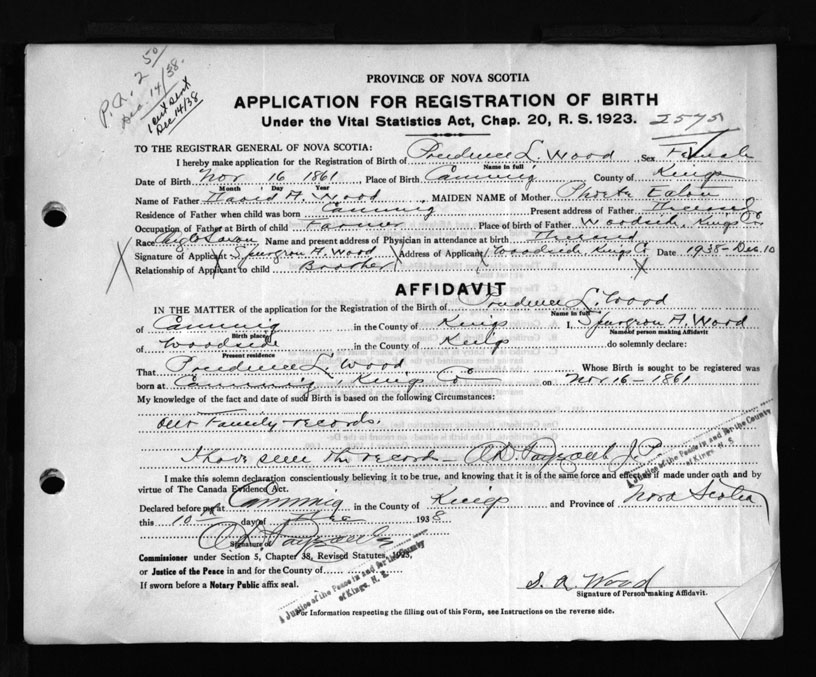 P.N. 2 50
Dec. 14/38.
1 cert sent
Dec 14/38
PROVINCE OF NOVA SCOTIA
APPLICATION FOR REGISTRATION OF BIRTH
Under the Vital Statistics Act, Chap. 20, R. S. 1923. 2575
TO THE REGISTRAR GENERAL OF NOVA SCOTIA:
I hereby make application for the Registration of Birth of Prudence L. Wood Sex Female
Name in full
Date of Birth Nov 16 1861 Place of Birth Canning County of Kings
Month Day Year
Name of Father David A. Wood MAIDEN NAME of Mother Phoebe Eaton
Residence of Father when child was born Canning Present address of Father Deceased
Occupation of Father at Birth of child Farmer Place of birth of Father Woodside, Kings Co
Race Anglo Saxon Name and present address of Physician in attendance at birth
Signature of Applicant Spurgeon A. Wood Address of Applicant Woodside Kings Co Date 1938-Dec. 10
Relationship of Applicant to child Brother
AFFIDAVIT
IN THE MATTER of the application for the Registration of the Birth of Prudence L. Wood
Name in full
of Canning in the County of Kings I, Spurgeon A. Wood
Birth place Name of person making Affidavit
of Woodside in the County of Kings do solemnly declare:
Present residence
That Prudence L. Wood Whose Birth is sought to be registered was
born at Canning, Kings Co on Nov. 16 - 1861
My knowledge of the fact and date of such Birth is based on the following Circumstances:
Our Family records.
I have seen the record - J.P.
A Justice of the Peace in and for the County
of Kings, N. S.
I make this solemn declaration conscientiously believing it to be true, and knowing that it is of the same force and effect as if made under oath and by
virtue of The Canada Evidence Act.
Declared before me at Canning in the County of Kings and Province of Nova Scotia
this 10 day of Dec 1938
Signature of
Commissioner under Section 5, Chapter 38, Revised Statutes, 1923,
or Justice of the Peace in and for the County of
If sworn before a Notary Public affix seal.
A Justice of the Peace in and for the County
of Kings, N. S.
S. A. Wood
Signature of Person making Affidavit.
For information respecting the filling out of this Form, see Instructions on the reverse side.